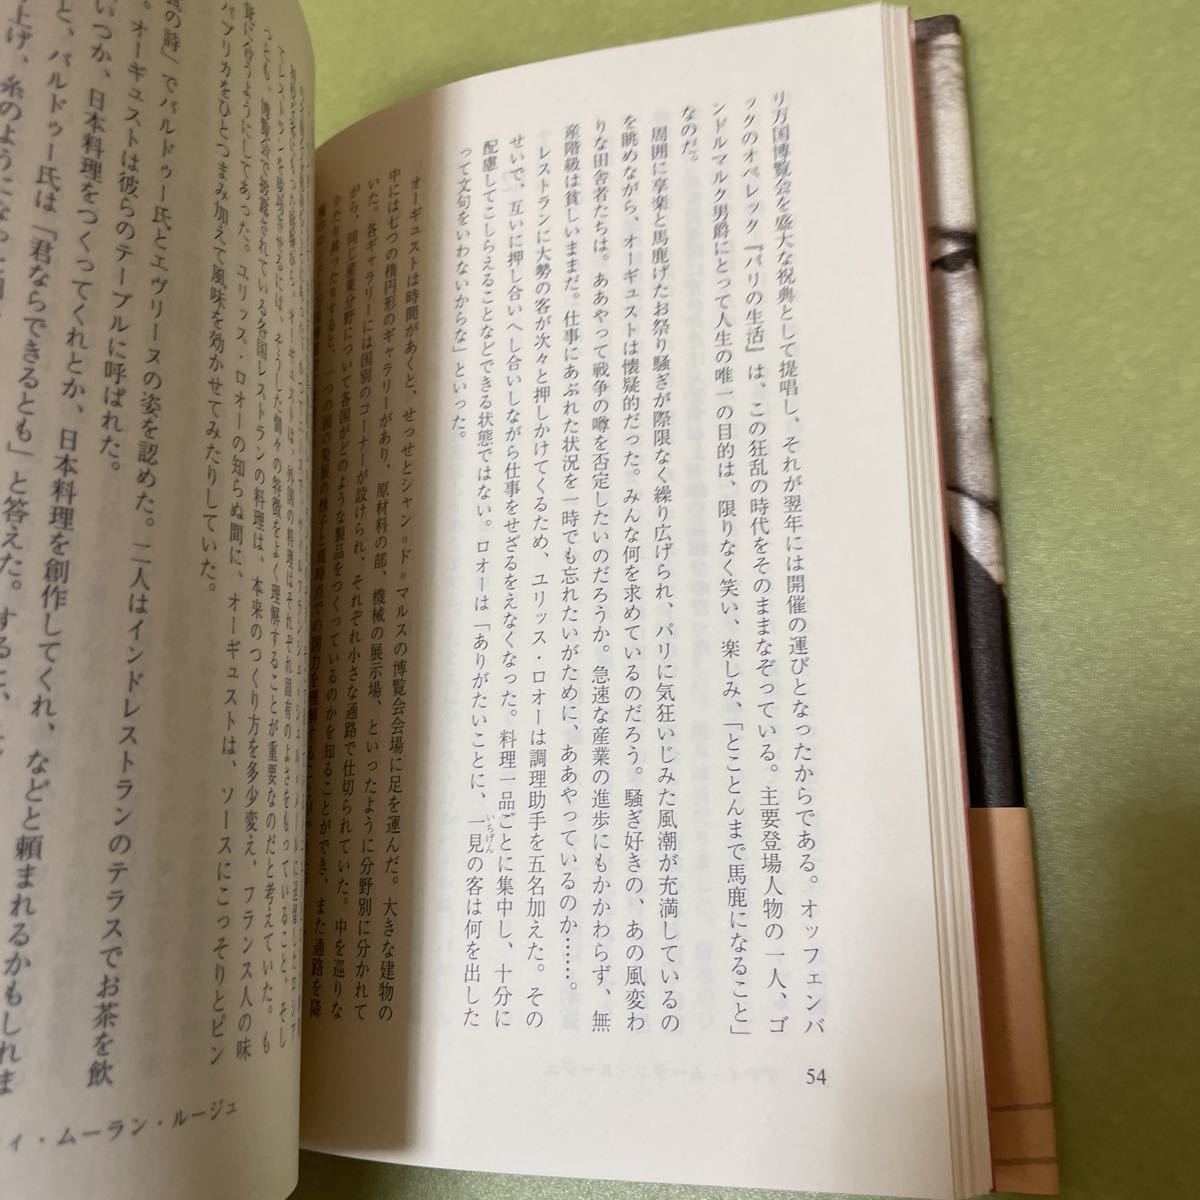 り万国博覧会を盛大な祝典として提唱し、それが翌年には開催の運びとなったからである。オッフェンバ
ックのオペレック『パリの生活』は、この狂乱の時代をそのままなぞっている。主要登場人物の一人、ゴ
ンドルマルク男爵にとって人生の唯一の目的は、限りなく笑い、楽しみ、「とことんまで馬鹿になること」
なのだ。
周囲に享楽と馬鹿げたお祭り騒ぎが際限なく繰り広げられ、パリに気狂いじみた風潮が充満しているの
を眺めながら、オーギュストは懐疑的だった。みんな何を求めているのだろう。騒ぎ好きの、あの風変わ
りな田舎者たちは。ああやって戦争の噂を否定したいのだろうか。急速な産業の進歩にもかかわらず、無
産階級は貧しいままだ。仕事にあぶれた状況を一時でも忘れたいがために、ああやっているのか……。
レストランに大勢の客が次々と押しかけてくるため、ユリッス・ロオーは調理助手を五名加えた。その
せいで、互いに押し合いへし合いしながら仕事をせざるをえなくなった。料理一品ごとに集中し、十分に
配慮してこしらえることなどできる状態ではない。ロオーは「ありがたいことに、一見の客は何を出した
いちげん
って文句をいわないからな」といった。
オーギュストは時間があくと、せっせとシャン＝ド＝マルスの博覧会会場に足を運んだ。大きな建物の
中には七つの楕円形のギャラリーがあり、原材料の部、機械の展示場、といったように分野別に分かれて
いた。各ギャラリーには国別のコーナーが設けられ、それぞれ小さな通路で仕切られていた。中を巡りな
がら、同じ産業分野について各国がどのような製品をつくっているのかを知ることができ、また通路を降
54
っても、博覧会で披露されている各国レストランの料理は、本来のつくり方を多少変え、フランス人の味
覚に合うようにしてあった。ユリッス・ロオーの知らぬ間に、オーギュストは、ソースにこっそりとピン
パプリカをひとつまみ加えて風味を効かせてみたりしていた。
の詩」でバルドゥー氏とエヴリーヌの姿を認めた。二人はインドレストランのテラスでお茶を飲
。オーギュストは彼らのテーブルに呼ばれた。
いつか、日本料理をつくってくれとか、日本料理を創作してくれ、などと頼まれるかもしれま
と、バルドゥー氏は「君ならできるとも」と答えた。すると、
上げ、糸のようになった
ィ・ムーラン・ルージュ